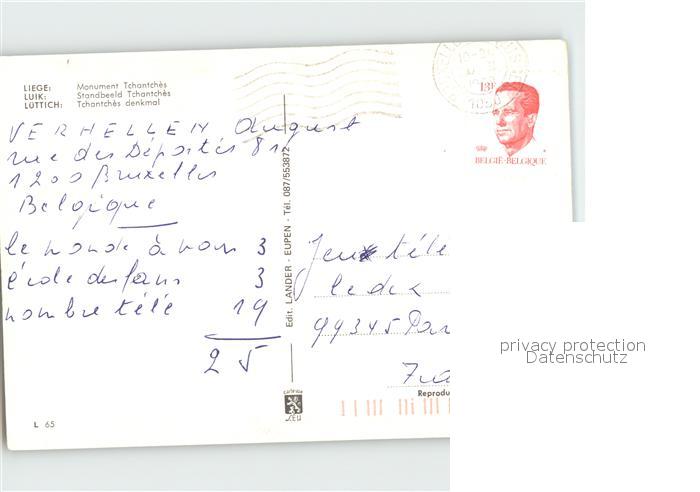 LIEGE: Monument Tchantchès
LUIK: Standbeeld Tchantchès
LÜTTICH: Tchantchès denkmal
VERHELLEN August
rue des Déportés 81
1200 Bruxelles
Belgique
le monde à nous 3
école des fans 3
nombre télé 19
25
L 65
Edit. LANDER - EUPEN - Tél. 087/553872
13F
BELGIË-BELGIQUE
Jeux télé
le dix
99345 Par
Reprodu
privacy protection
Datenschutz